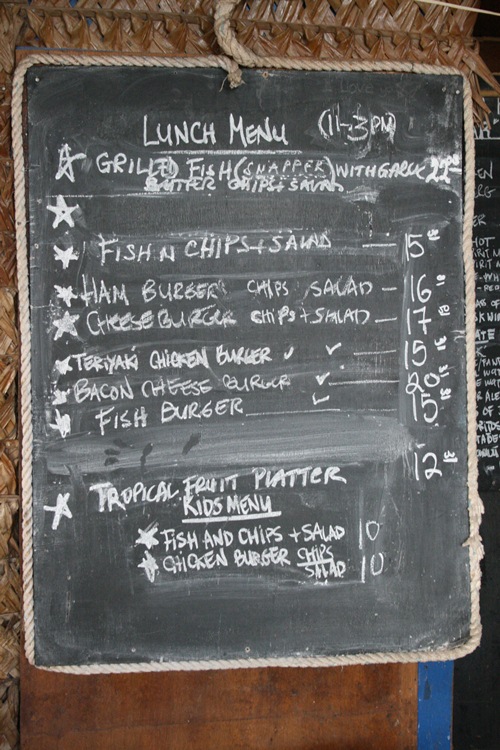 LUNCH MENU (11-3PM)
GRILLED FISH (SNAPPER) WITH GARLIC 22
BUTTER CHIPS + SALAD
FISH N CHIPS + SALAD — 5
HAM BURGER CHIPS SALAD — 16
CHEESE BURGER CHIPS + SALAD — 17
TERIYAKI CHICKEN BURGER ✓ ✓ — 15
BACON CHEESE BURGER ✓ — 20
FISH BURGER — ✓ 15
TROPICAL FRUIT PLATTER 12
KIDS MENU
FISH AND CHIPS + SALAD 10
CHICKEN BURGER CHIPS 10
SALAD